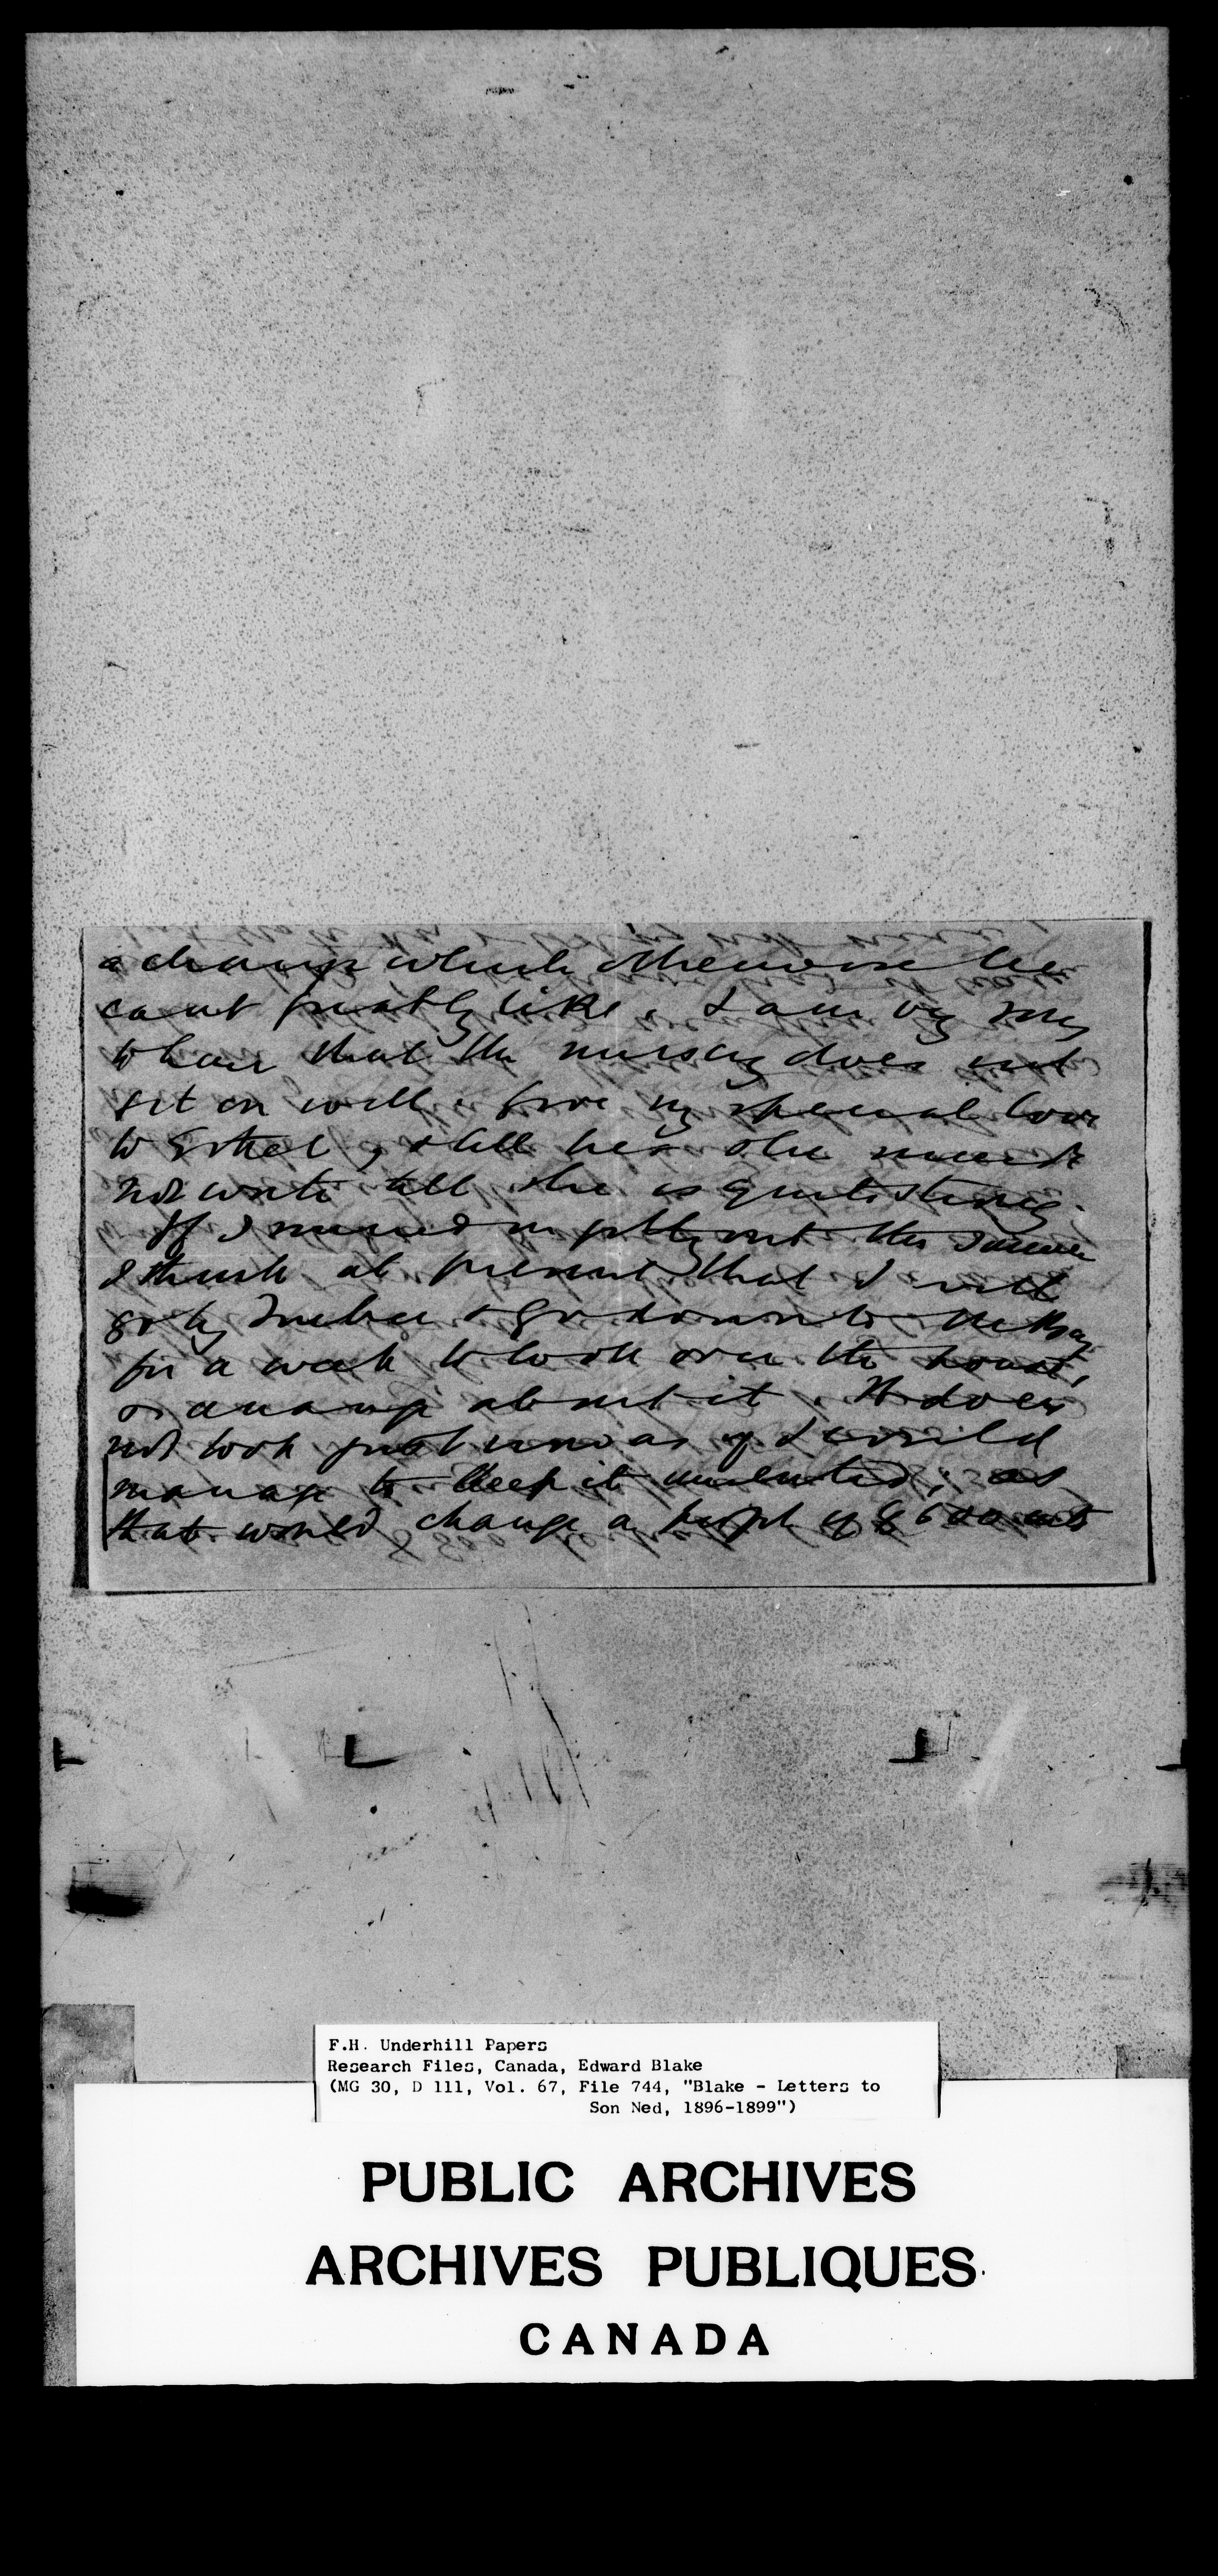 a change which otherwise he
cant greatly like. I am vy sorry
to hear that the nursing does not
get on well. Give my special love
to Ethel, & tell her she must
not write till she is quite strong.
If I succeed in getting out this summer
I think at present that I will
go by Quebec & go down to the Bay
for a week to look over the house,
& arrange about it. It does
not look just now as if I could
manage to keep it; as
that would change a of 600
F.H. Underhill Papers
Research Files, Canada, Edward Blake
(MG 30, D 111, Vol. 67, File 744, "Blake - Letters to
Son Ned, 1896-1899")
PUBLIC ARCHIVES
ARCHIVES PUBLIQUES
CANADA